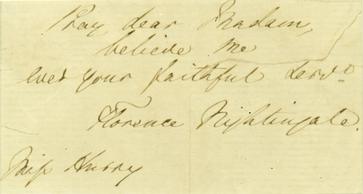 Pray, dear Madam,
believe me
ever your faithful servt
Florence Nightingale.
Miss Hurry